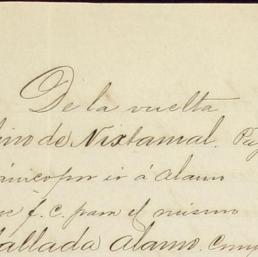 De la vuelta
lino de Nixtamal. Pag
ánico por ir á Alamo
f. c. para el mismo
allada Alamo. Comp